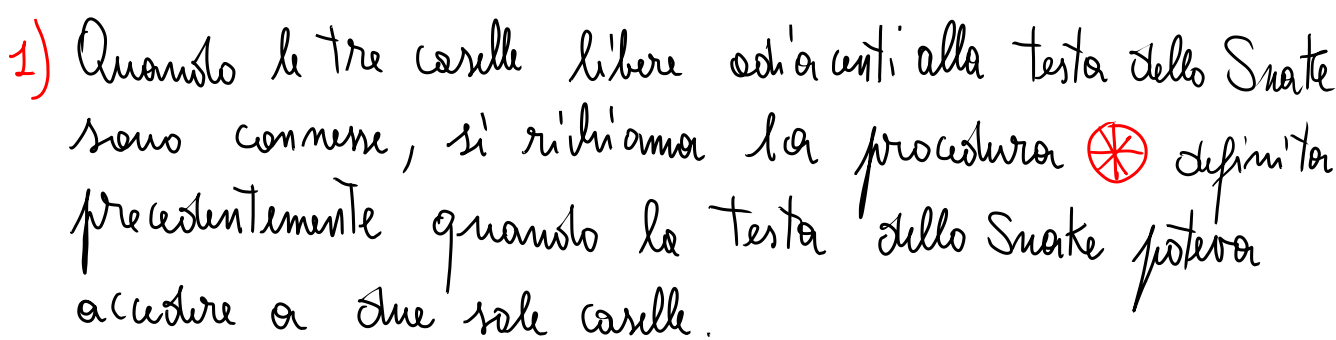 1) Quando le tre caselle libere adiacenti alla testa dello Snake
sono connesse, si richiama la procedura ⊛ definita
precedentemente quando la testa dello Snake poteva
accedere a due sole caselle.